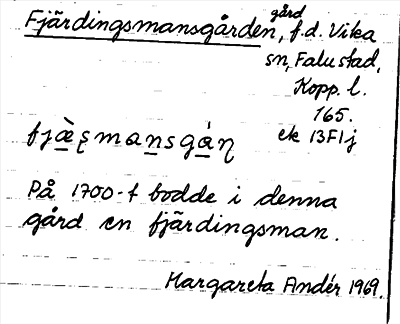 Fjärdingsmansgården, gård, f.d. Vika
sn, Falu stad,
Kopp. l.
165.
ek 13F1j
fjæ̀ʂmansgán̡
På 1700-t bodde i denna
gård en fjärdingsman.
Margareta Andér 1969.